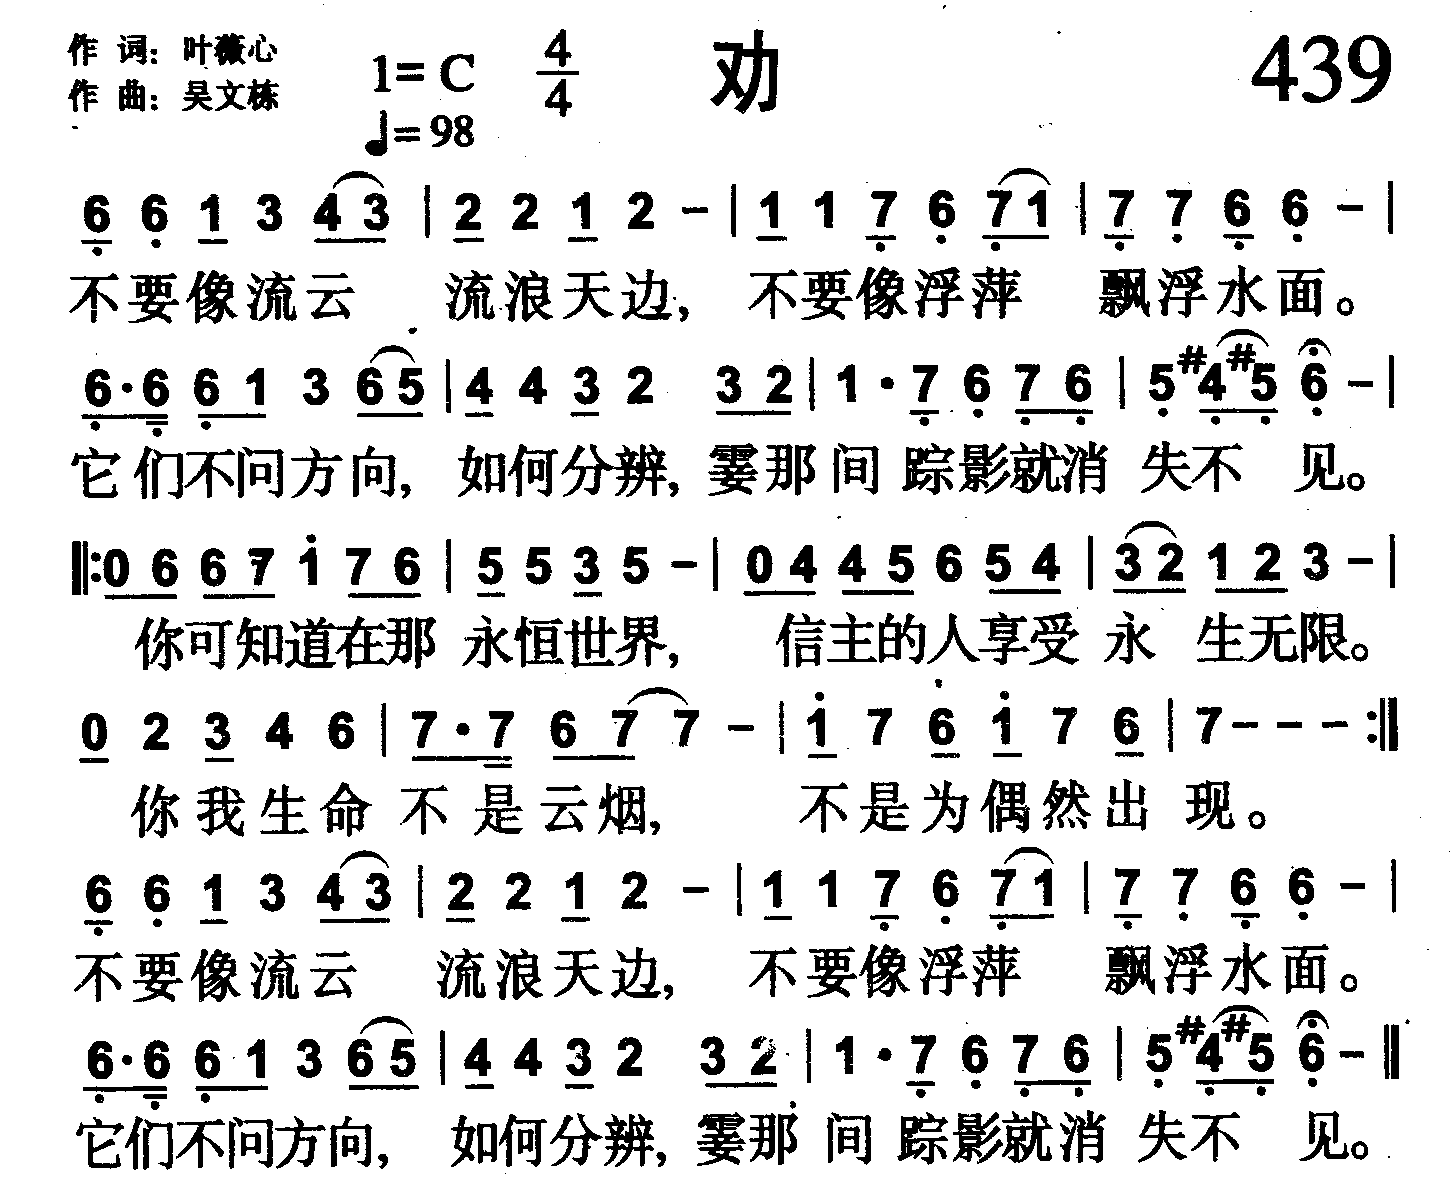 作 词：叶薇心
作 曲：吴文栋
1=C 4/4
♩=98
劝
439
6 6 1 3 4 3 | 2 2 1 2 – | 1 1 7 6 7 1 | 7 7 6 6 – |
不要像流云 流浪天边，不要像浮萍 飘浮水面。
6·6 6 1 3 6 5 | 4 4 3 2 3 2 | 1·7 6 7 6 | 5 #4 #5 6 – |
它们不问方向，如何分辨，霎那间 踪影就消失不见。
‖:0 6 6 7 1 7 6 | 5 5 3 5 – | 0 4 4 5 6 5 4 | 3 2 1 2 3 – |
你可知道在那 永恒世界， 信主的人享受 永 生无限。
0 2 3 4 6 | 7·7 6 7 7 – | 1 7 6 1 7 6 | 7 – – – :‖
你我生命 不是云烟， 不是为偶然出 现。
6 6 1 3 4 3 | 2 2 1 2 – | 1 1 7 6 7 1 | 7 7 6 6 – |
不要像流云 流浪天边， 不要像浮萍 飘浮水面。
6·6 6 1 3 6 5 | 4 4 3 2 3 2 | 1·7 6 7 6 | 5 #4 #5 6 – ‖
它们不问方向， 如何分辨，霎那 间 踪影就消 失不 见。